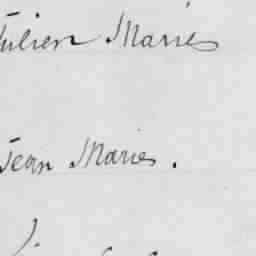 Julien Mariés
Jean Maries.